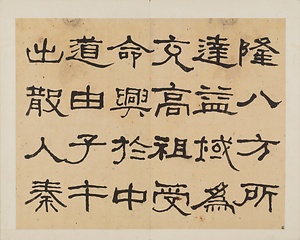 隆八方所
達益域為
克高祖受
命興於中
道由子午
出散入秦